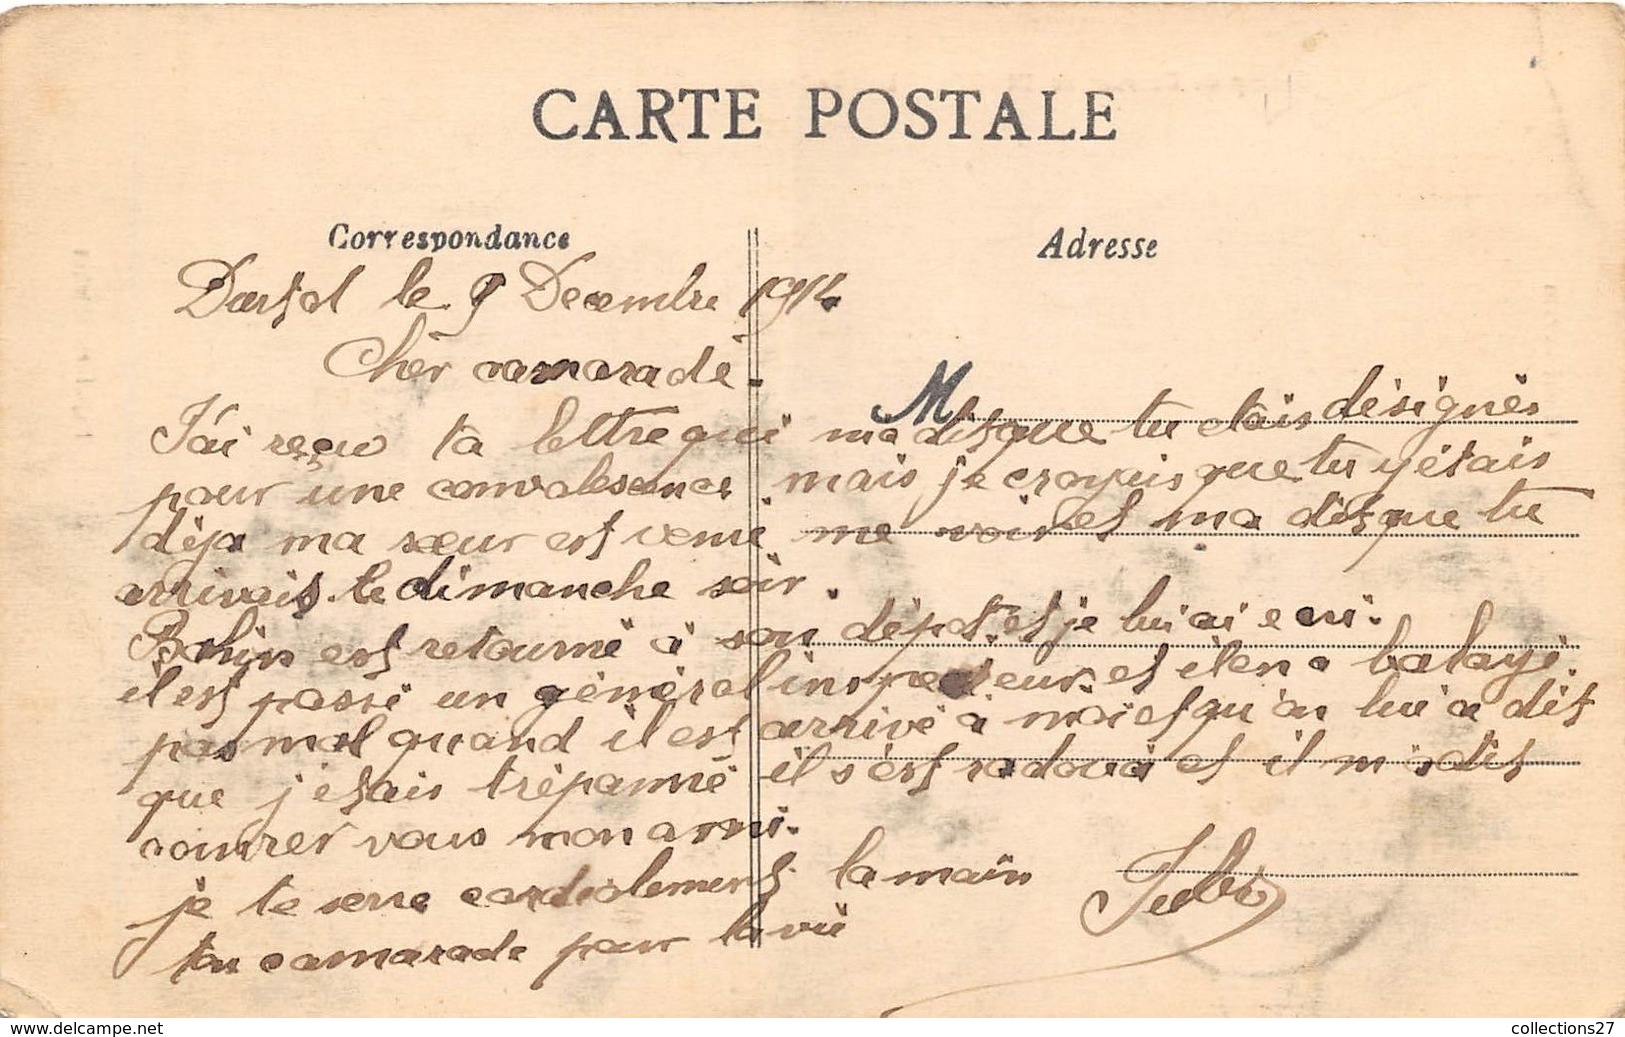 CARTE POSTALE
Correspondance
Adresse
le 9 Decembre 191
Cher camarade.
M
J'ai reçu ta lettre qui ma dit que tu étais désignés
pour une convalesence mais je croyais que tu y étais
déja ma sœur est venue me voir et ma dit que tu
arrivais le dimanche soir.
est retourné à son dépot et je lui ai ecri.
il est passé un général inspecteur et il en a balayé
pas mal quand il est arrivé à moi et qu'on lui a dit
que j'etais trépanné il s'est radouci et il m'a dit
vous mon ami.
je te serre cardialement la main
ton camarade pour la vie
www.delcampe.net
collections27